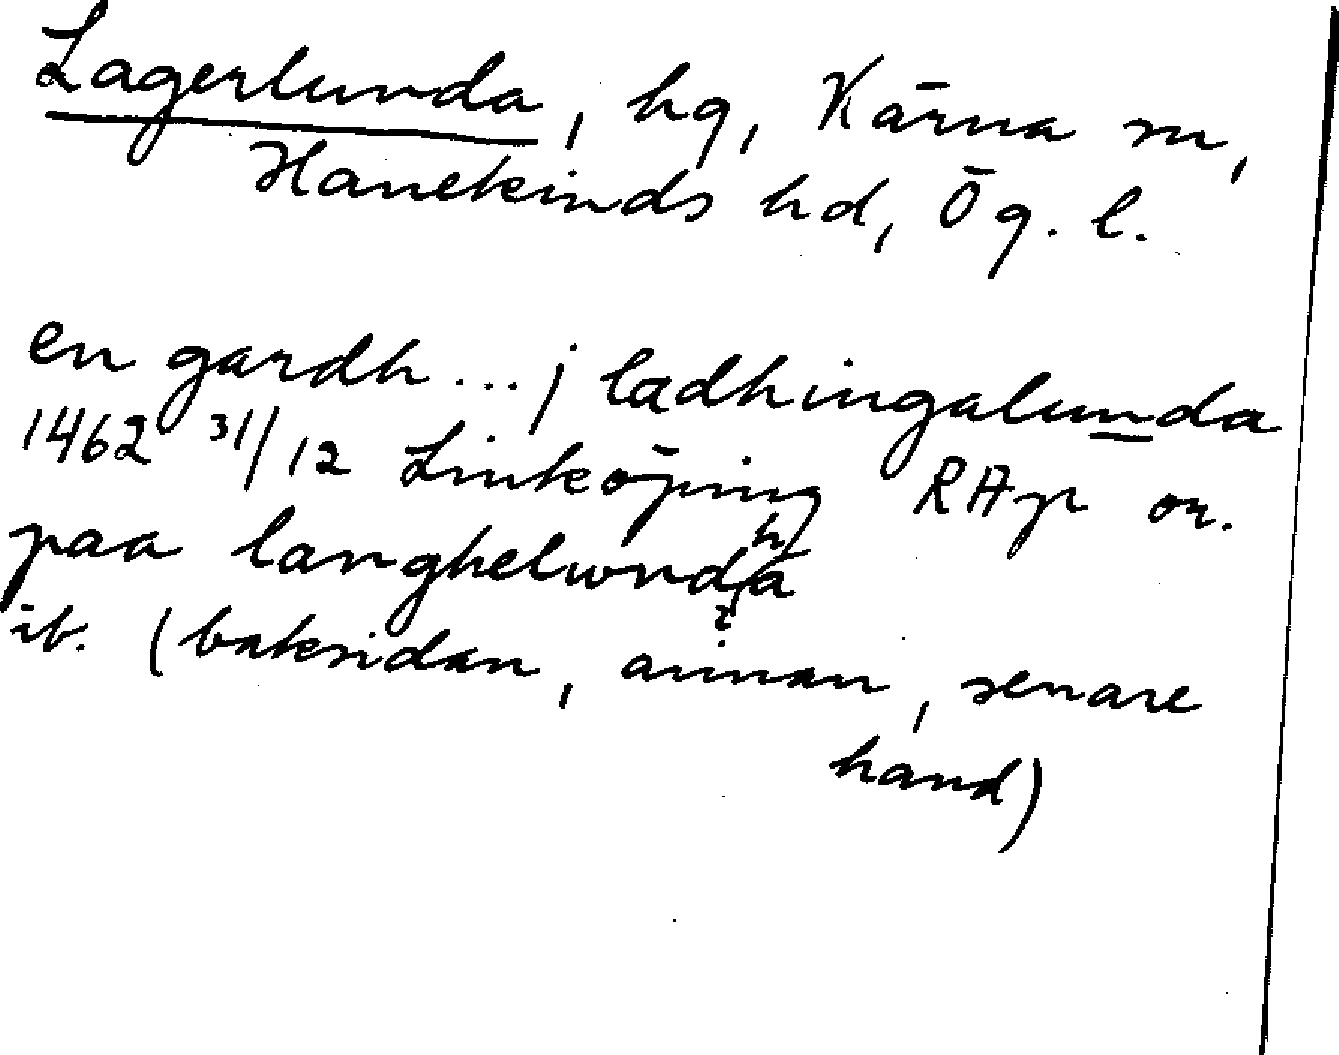 Lagerlunda, hg, Kärna sn,
Hanekinds hd, Ög. l.
en gardh ... j ladhingalunda
1462 31/12 Linköping RAp or.
paa langhelwndha
ib. (baksidan, annan, senare
hand)